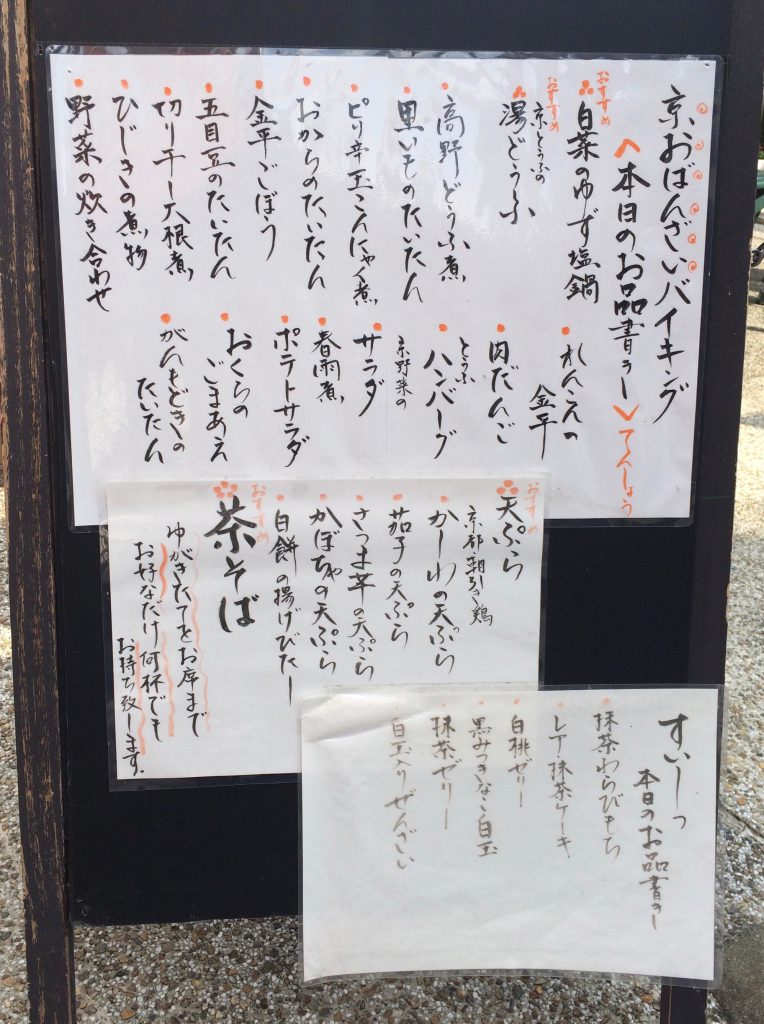 京おばんざいバイキング
へ本日のお品書き〉てんしょう
おすすめ
白菜のゆず塩鍋
おすすめ
京とうふの
湯どうふ
高野どうふ煮
黒いものたいたん
ピリ辛玉こんにゃく煮
おからのたいたん
金平ごぼう
五目豆のたいたん
切り干し大根煮
ひじきの煮物
野菜の炊き合わせ
れんこんの
金平
肉だんご
とうふ
ハンバーグ
京野菜の
サラダ
春雨煮
ポテトサラダ
おくらの
ごまあえ
がんもどきの
たいたん
おすすめ
天ぷら
京都・朝引き鶏
かしわの天ぷら
茄子の天ぷら
さつま芋の天ぷら
かぼちゃの天ぷら
白餅の揚げびたし
おすすめ
茶そば
ゆがきたてをお席まで
お好なだけ何杯でも
お持ち致します。
すいーつ
本日のお品書き
抹茶わらびもち
レア抹茶ケーキ
白桃ゼリー
黒みつきなこ白玉
抹茶ゼリー
白玉入りぜんざい